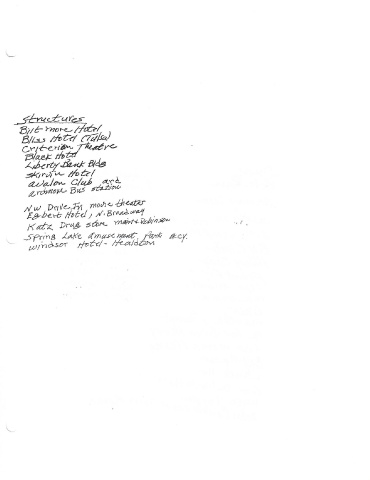 Structures
Biltmore Hotel
Bliss Hotel (Tulsa)
Criterion Theatre
Black Hotel
Liberty Bank Bldg
Skirvin Hotel
Avalon Club and
Ardmore Bus station
NW Drive In movie theater
Egbert Hotel, N. Broadway
Katz Drug store main & Robinson
Spring Lake amusement Park
Windsor Hotel - Healdton